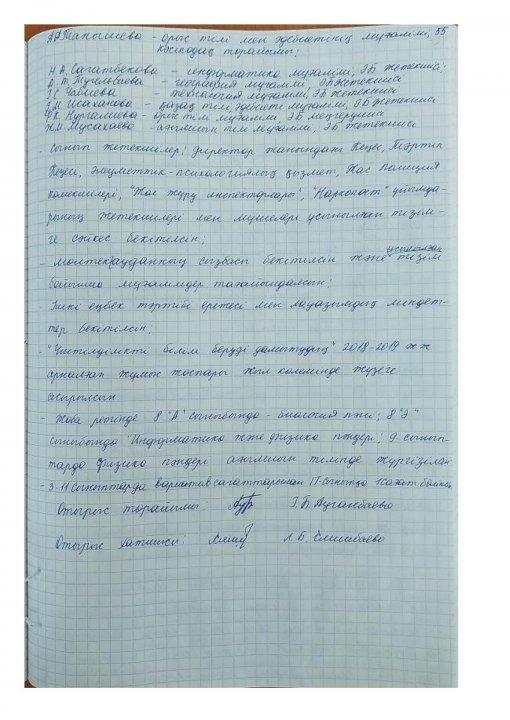 А.Р.Танышева - орыс тілі мен әдебиетінің мұғалімі, 55
кәсіподақ төрайымы;
Н.А. Сагатбекова - информатика мұғалімі, ЭБ жетекшісі;
- география мұғалімі ЭБ жетекшісі
- технология мұғалімі, ЭБ жетекшісі
Исаханова - қазақ тілі, әдебиеті мұғалімі, ЭБ жетекшісі
Нургалиева - орыс тілі мұғалімі, ЭБ
Мусахаева - ағылшын тілі мұғалімі, ЭБ жетекшісі
- Сынып жетекшілері, директор жанындағы Кеңес, Тәртіп
Кеңесі, Әлеуметтік-психологиялық қызмет, Жас полиция
көмекшілері, "Жол жүру инспекторлары", "Наркопост" ұйымда-
рының жетекшілері мен мүшелері ұсынылған тізім-
ге сәйкес бекітілсін;
- молтек(ауданның) сызбасы бекітілсін және ұсынылған тізім
бойынша мұғалімдер тағайындалсын;
- Ішкі еңбек тәртібі ережесі мен лауазымдық міндет-
тер бекітілсін;
- "Үштілділікті білім беруді дамытудың" 2018-2019 жж
арналған жұмыс жоспары жыл көлемінде жүзеге
асырылсын.
- Жоба ретінде 8 "А" сыныбында - биология пәні; 8 "Ә"
сыныбында Информатика және физика пәндері; 9 сынып-
тарда физика пәндері ағылшын тілінде жүргізілсін
- 3-11 сыныптарда вариатив сағаттарынан IT-сыныпқа 1 сағат бөлінсін
Отырыс төрайымы: З.Б. Ауганбаева
Отырыс хатшысы: Л.Б. Елшибаева